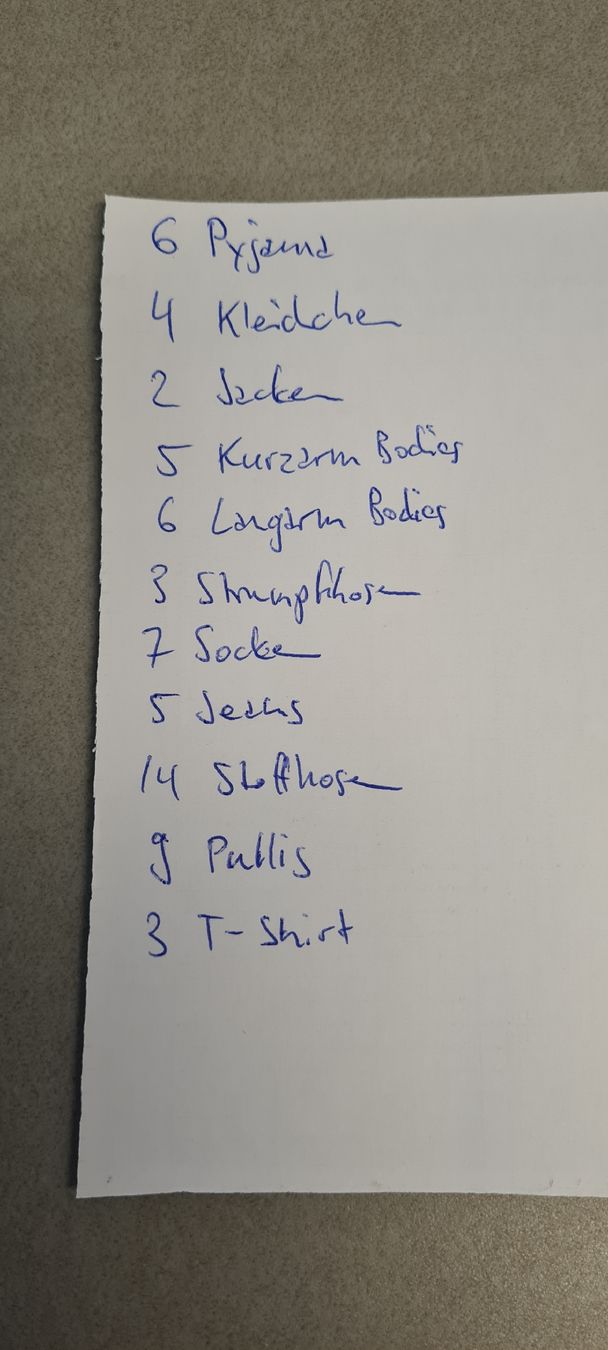 6 Pyjama
4 Kleidchen
2 Jacken
5 Kurzarm Bodies
6 Langarm Bodies
3 Strumpfhosen
7 Socken
5 Jeans
14 Stoffhosen
9 Pullis
3 T-Shirt